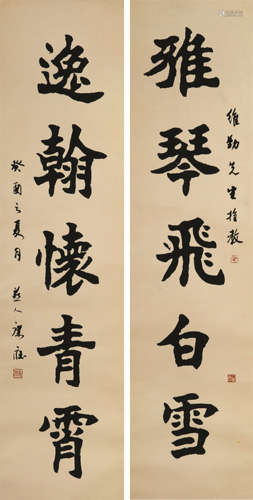 雅琴飛白雪
維勤先生指教
逸翰懷青霄
癸酉之夏月